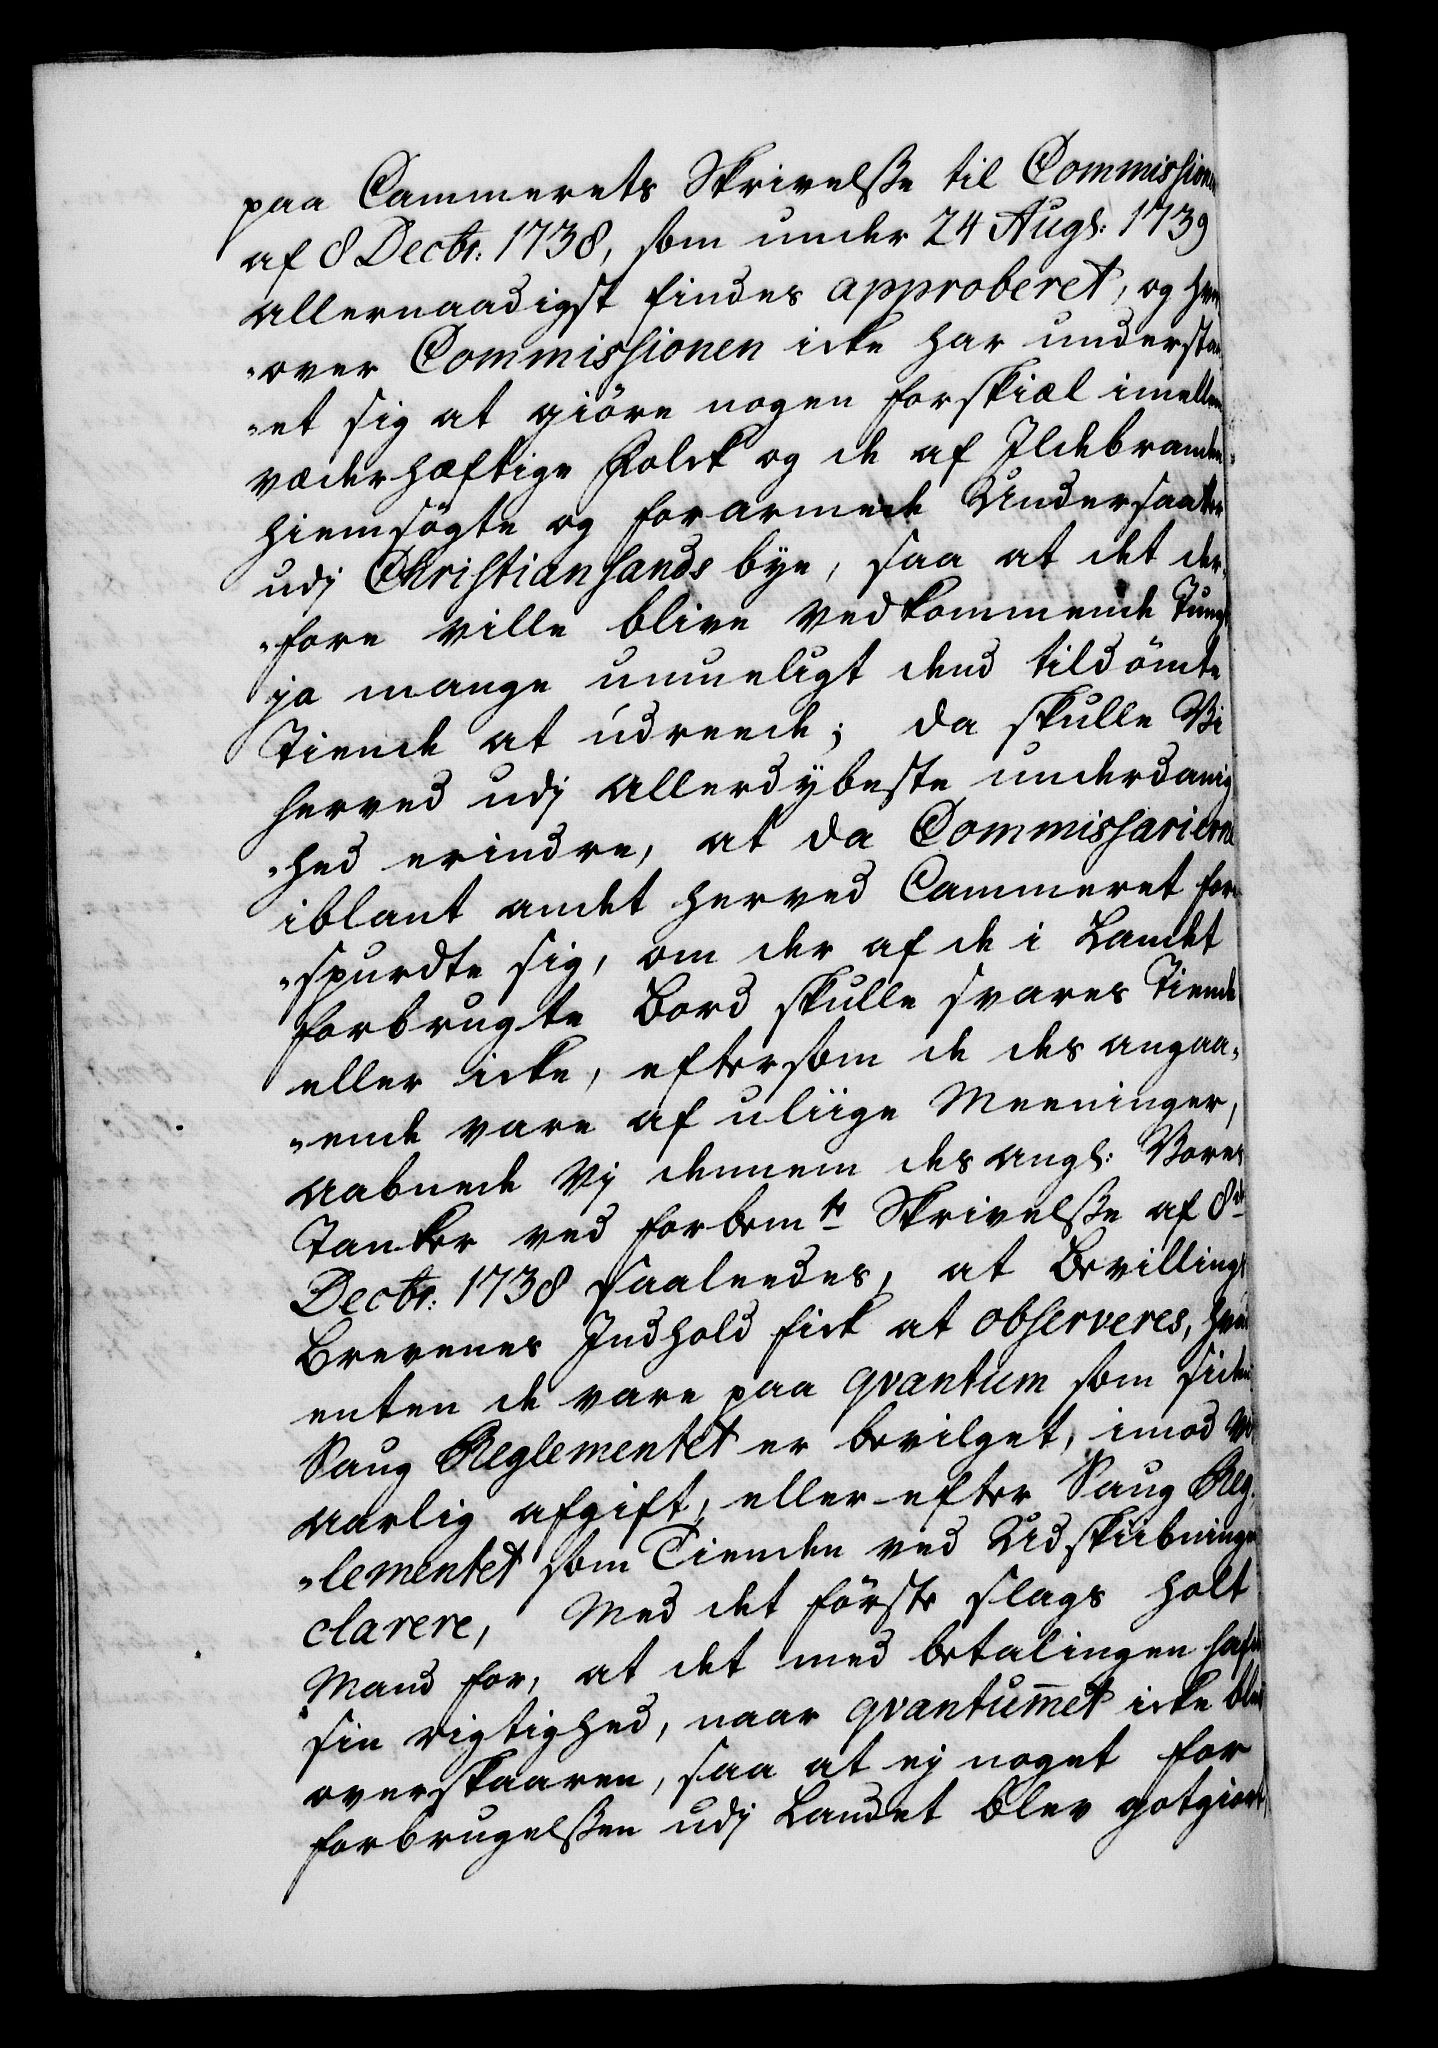 paa Cammerets Skrivelße til Commissionen
af 8 Decbr: 1738, som under 24 Augs: 1739
allernaadigst findes approberet, og hver
"over Commissionen icke har understaa
"et sig at giöre nogen forskiæl imellem
væderhæftige Folck og de af Ildebranden
hiemsögte og forarmede Undersaatter
udj Christiansands bye, saa at det der
"fore ville blive vedkommende Tungt
ja mange umueligt dend tildömte
Tiende at údreede; da skulle Vi
herved udj allerdÿbeste underdanig
"hed erindre, at da Commissarierne
iblant andet herved Cammeret fore
"spurdte sig, om der af de i Landet
forbrugte Bord skulle svares Tiende
eller icke, eftersom de des angaa,
"ende vare af uliige Meeninger,
aabnede Vj dennem des angl: Vores
Tanker ved forbemte Skrivelße af 8de
Decbr: 1738 saaleedes, at Bevillings
Brevenes Indhold fick at observeres, hvad
enten de vare paa qvantum som siden
Saug Reglementet er bevilget, imod vis
aarlig afgift, eller efter Saug Reg,
"lementet som Tienden ved Udskibningen
clarere, Med det förste slags holt
Mand for, at det med betalingen hafde
sin rigtighed, naar qvantum̄et icke blev
overskaaren, saa at ej noget for
forbrugelßen udj Landet blev gotgiort,